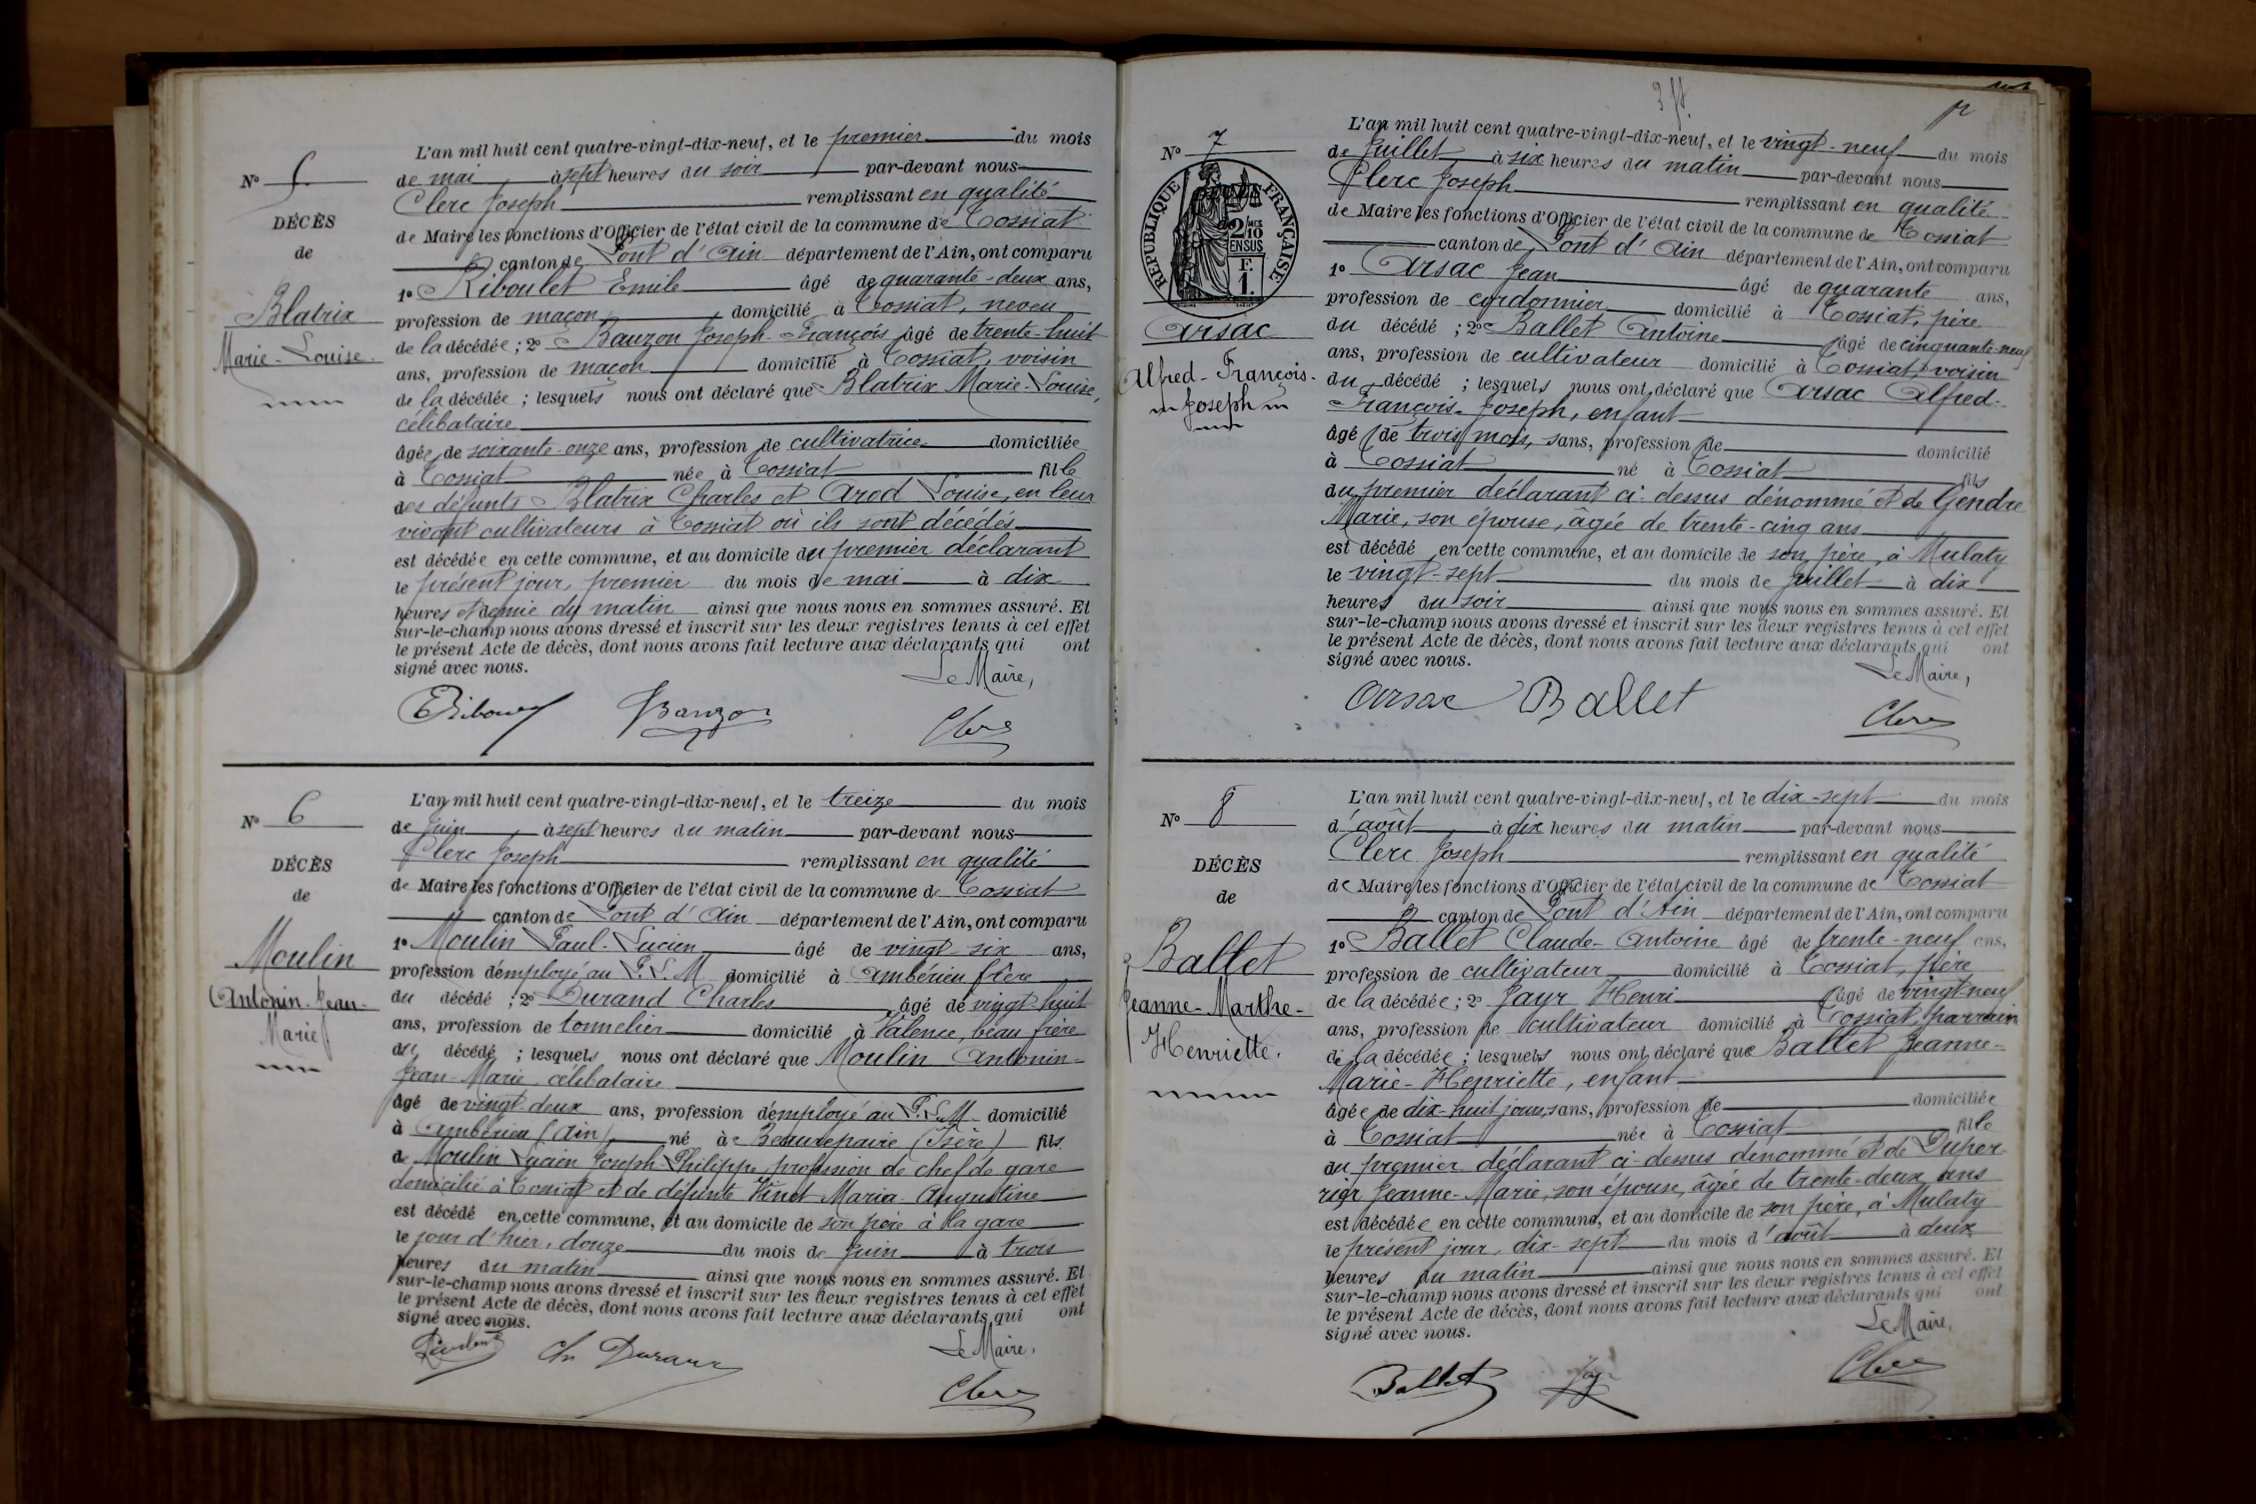 N° 5
DÉCÈS
de
Blatrix
Marie-Louise
L'an mil huit cent quatre-vingt-dix-neuf, et le premier du mois
de mai à sept heures du soir par-devant nous
Clerc Joseph remplissant en qualité
de Maire les fonctions d'Officier de l'état civil de la commune de Tossiat
canton de Pont d'Ain département de l'Ain, ont comparu
1° Riboulet Emile âgé de quarante-deux ans,
profession de maçon domicilié à Tossiat, neveu
de la décédée ; 2° Bauzon Joseph-François âgé de trente-huit
ans, profession de maçon domicilié à Tossiat, voisin
de la décédée ; lesquels nous ont déclaré que Blatrix Marie-Louise,
célibataire
âgée de soixante-onze ans, profession de cultivatrice domiciliée
à Tossiat née à Tossiat fille
des défunts Blatrix Charles et Arod Louise, en leur
vivant cultivateurs à Tossiat où ils sont décédés
est décédée en cette commune, et au domicile du premier déclarant
le présent jour, premier du mois de mai à dix
heures et demie du matin ainsi que nous nous en sommes assuré. Et
sur-le-champ nous avons dressé et inscrit sur les deux registres tenus à cet effet
le présent Acte de décès, dont nous avons fait lecture aux déclarants qui ont
signé avec nous.
Le Maire,
Bauzon Clerc
N° 6
DÉCÈS
de
Moulin
Antonin-Jean-
Marie
L'an mil huit cent quatre-vingt-dix-neuf, et le treize du mois
de Juin à sept heures du matin par-devant nous
Clerc Joseph remplissant en qualité
de Maire les fonctions d'Officier de l'état civil de la commune de Tossiat
canton de Pont d'Ain département de l'Ain, ont comparu
1° Moulin Paul-Lucien âgé de vingt-six ans,
profession d'employé au P.L.M domicilié à Ambérieu frère
du décédé ; 2° Durand Charles âgé de vingt-huit
ans, profession de tonnelier domicilié à Valence, beau frère
du décédé ; lesquels nous ont déclaré que Moulin Antonin-
Jean-Marie célibataire
âgé de vingt-deux ans, profession d'employé au P.L.M domicilié
à Ambérieu (Ain), né à Beaurepaire (Isère) fils
de Moulin Lucien Joseph Philippe profession de chef de gare
domicilié à Tossiat et de défunte Vinot Maria-Augustine
est décédé en cette commune, et au domicile de son père à la gare
le jour d'hier, douze du mois de Juin à trois
heures du matin ainsi que nous nous en sommes assuré. Et
sur-le-champ nous avons dressé et inscrit sur les deux registres tenus à cet effet
le présent Acte de décès, dont nous avons fait lecture aux déclarants qui ont
signé avec nous.
Le Maire,
Ch Durand Clerc
N° 7
RÉPUBLIQUE FRANÇAISE
2/10
EN SUS
F.
1.
Arsac
Alfred-François-
Joseph
L'an mil huit cent quatre-vingt-dix-neuf, et le vingt-neuf du mois
de Juillet à six heures du matin par-devant nous
Clerc Joseph remplissant en qualité
de Maire les fonctions d'Officier de l'état civil de la commune de Tossiat
canton de Pont d'Ain département de l'Ain, ont comparu
1° Arsac Jean âgé de quarante ans,
profession de cordonnier domicilié à Tossiat, père
du décédé ; 2° Ballet Antoine âgé de cinquante-neuf
ans, profession de cultivateur domicilié à Tossiat, voisin
du décédé ; lesquels nous ont déclaré que Arsac Alfred-
François-Joseph, enfant
âgé de trois mois, sans, profession de domicilié
à Tossiat né à Tossiat fils
du premier déclarant ci-dessus dénommé et de Gendre
Marie, son épouse, âgée de trente-cinq ans
est décédé en cette commune, et au domicile de son père, à Mulaty
le vingt-sept du mois de Juillet à dix
heures du soir ainsi que nous nous en sommes assuré. Et
sur-le-champ nous avons dressé et inscrit sur les deux registres tenus à cet effet
le présent Acte de décès, dont nous avons fait lecture aux déclarants qui ont
signé avec nous.
Le Maire,
Arsac Ballet Clerc
N° 8
DÉCÈS
de
Ballet
Jeanne-Marthe-
Henriette.
L'an mil huit cent quatre-vingt-dix-neuf, et le dix-sept du mois
d'août à dix heures du matin par-devant nous
Clerc Joseph remplissant en qualité
de Maire les fonctions d'Officier de l'état civil de la commune de Tossiat
canton de Pont d'Ain département de l'Ain, ont comparu
1° Ballet Claude-Antoine âgé de trente-neuf ans,
profession de cultivateur domicilié à Tossiat, père
de la décédée ; 2° Jayr Henri âgé de vingt-neuf
ans, profession de cultivateur domicilié à Tossiat, parrain
de la décédée ; lesquels nous ont déclaré que Ballet Jeanne-
Marie-Henriette, enfant
âgée de dix-huit jours, sans, profession de domiciliée
à Tossiat née à Tossiat fille
du premier déclarant ci-dessus dénommé et de Duper
rier Jeanne-Marie, son épouse, âgée de trente-deux ans
est décédée en cette commune, et au domicile de son père, à Mulaty
le présent jour, dix-sept du mois d'août à deux
heures du matin ainsi que nous nous en sommes assuré. Et
sur-le-champ nous avons dressé et inscrit sur les deux registres tenus à cet effet
le présent Acte de décès, dont nous avons fait lecture aux déclarants qui ont
signé avec nous.
Le Maire,
Ballet Clerc